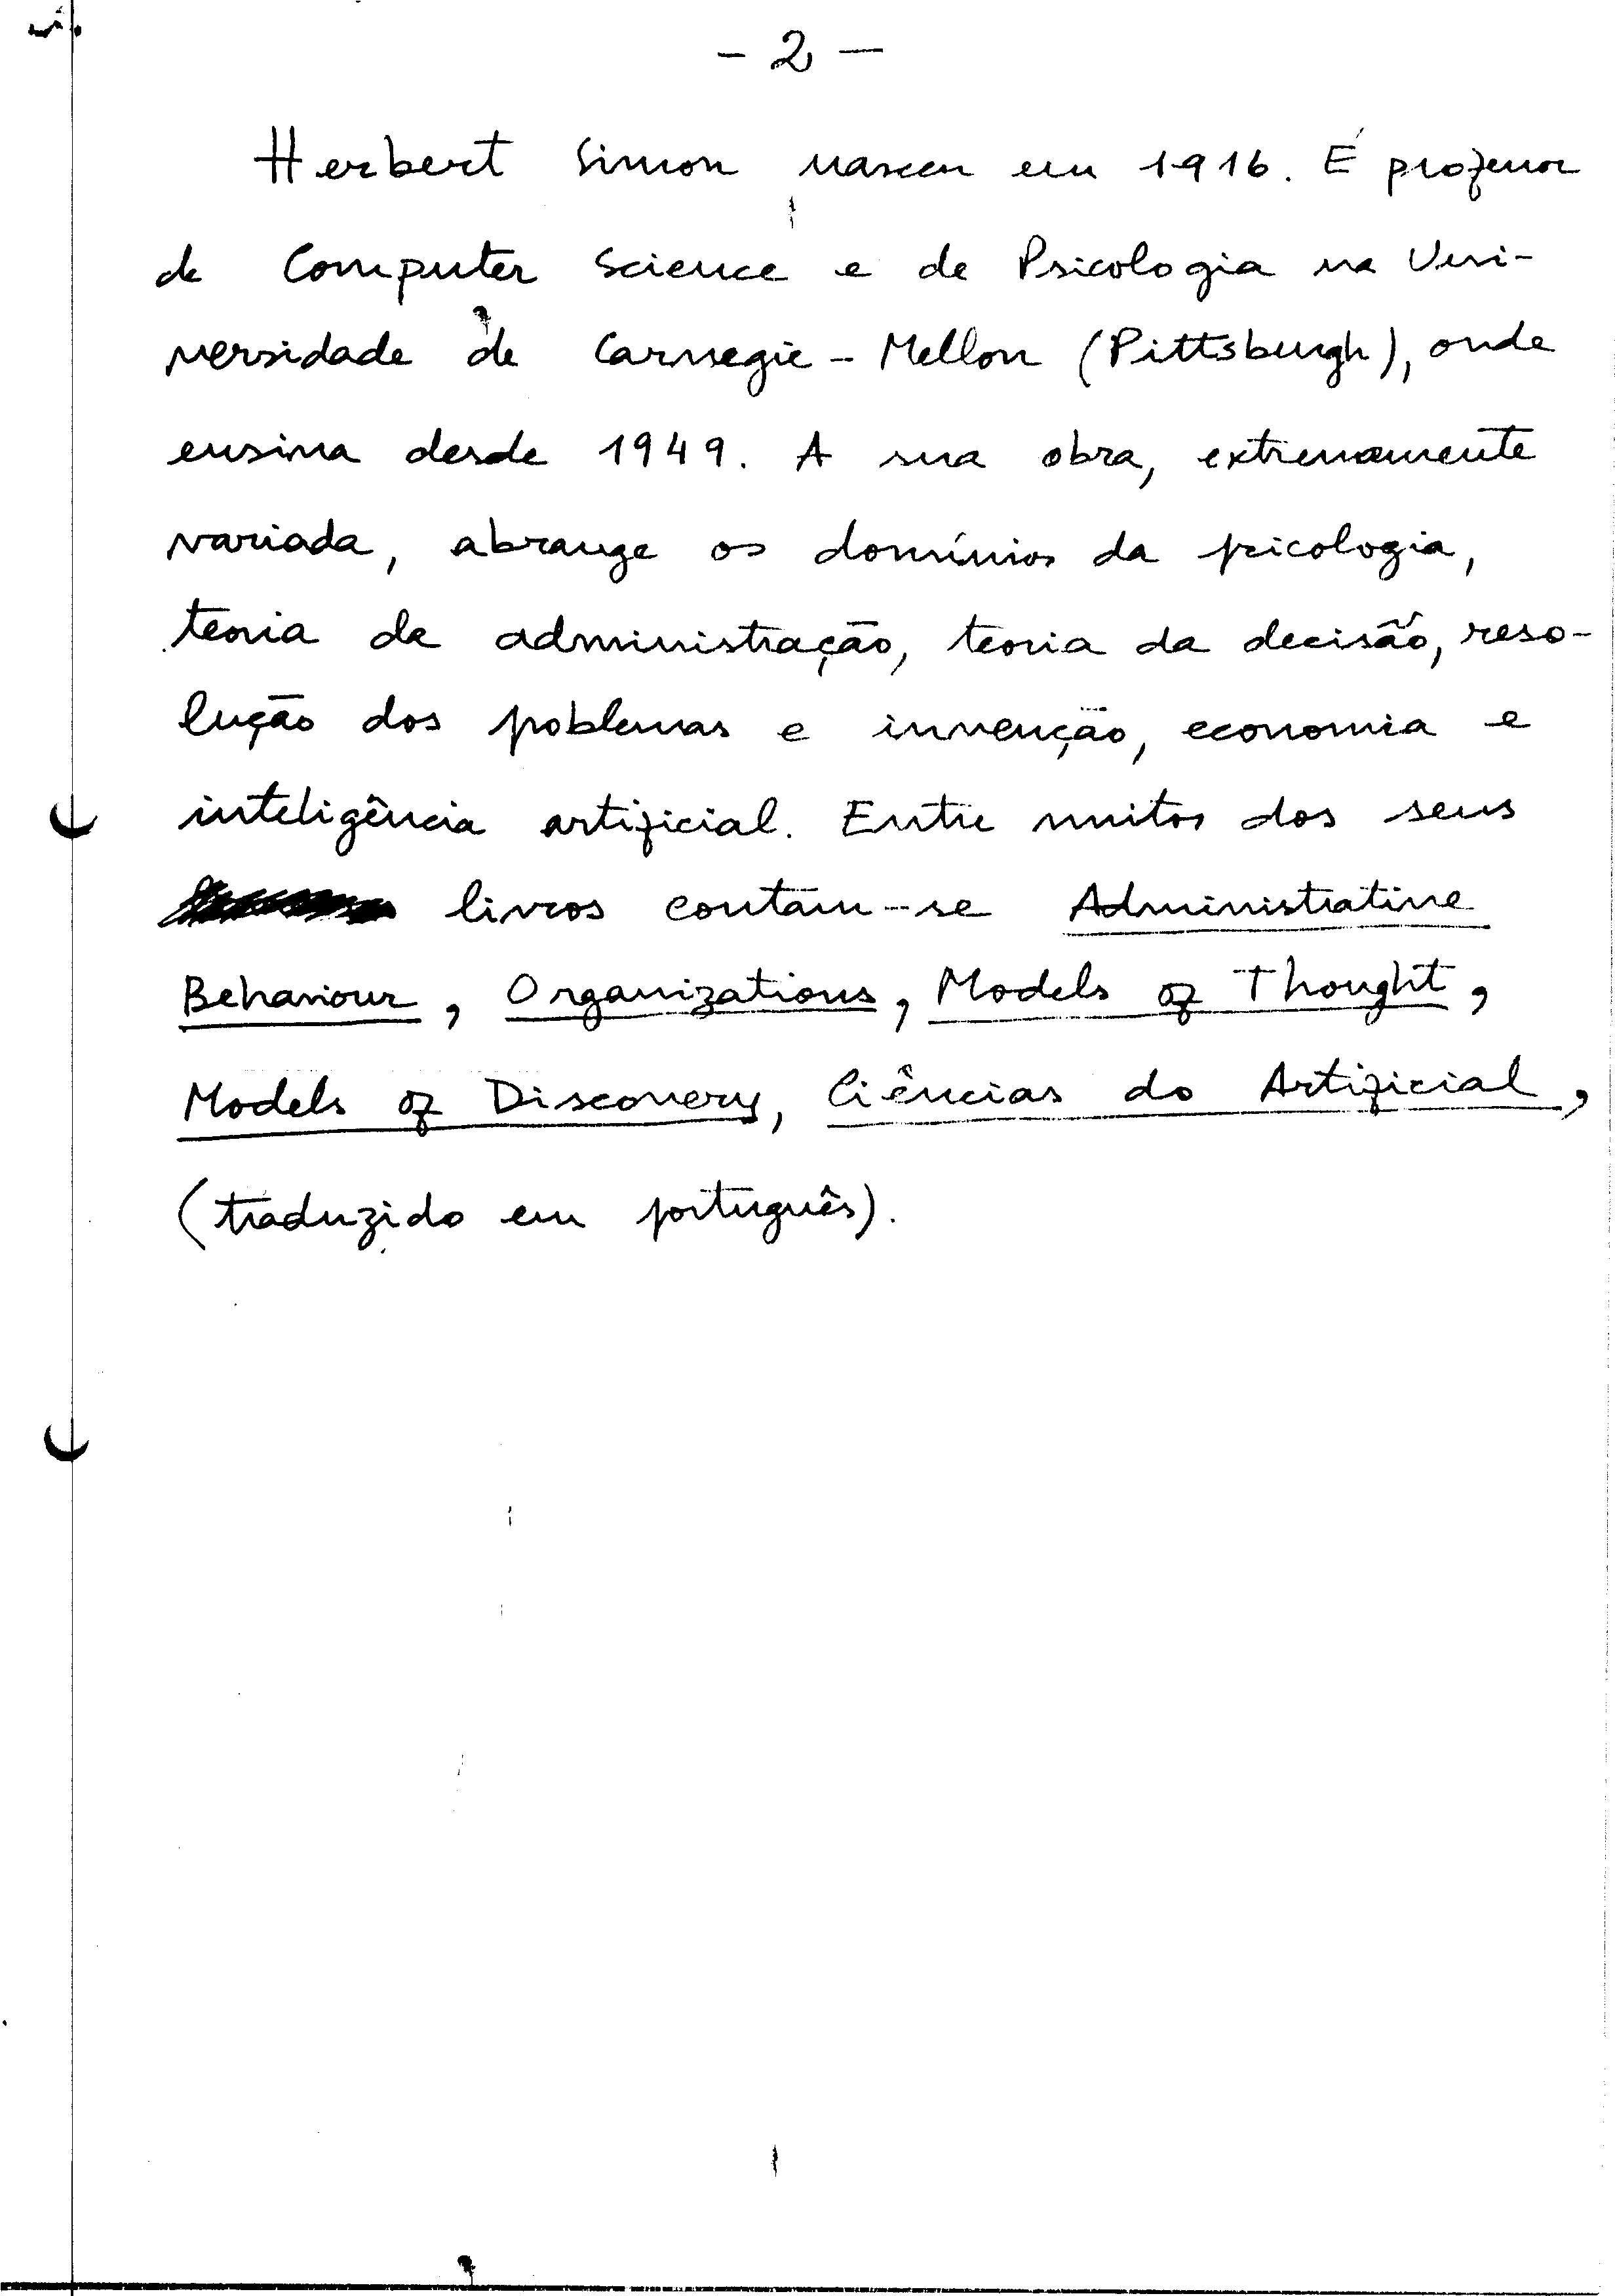 - 2 -
Herbert Simon nasceu em 1916. É professor
de Computer Science e de Psicologia na Uni-
versidade de Carnegie-Mellon (Pittsburgh), onde
ensina desde 1949. A sua obra, extremamente
variada, abrange os domínios da psicologia,
teoria da administração, teoria da decisão, reso-
lução dos poblemas e invenção, economia e
inteligência artificial. Entre muitos dos seus
livros contam-se Administrative
Behaviour, Organizations, Models of Thought,
Models of Discovery, Ciências do Artificial,
(traduzido em português).